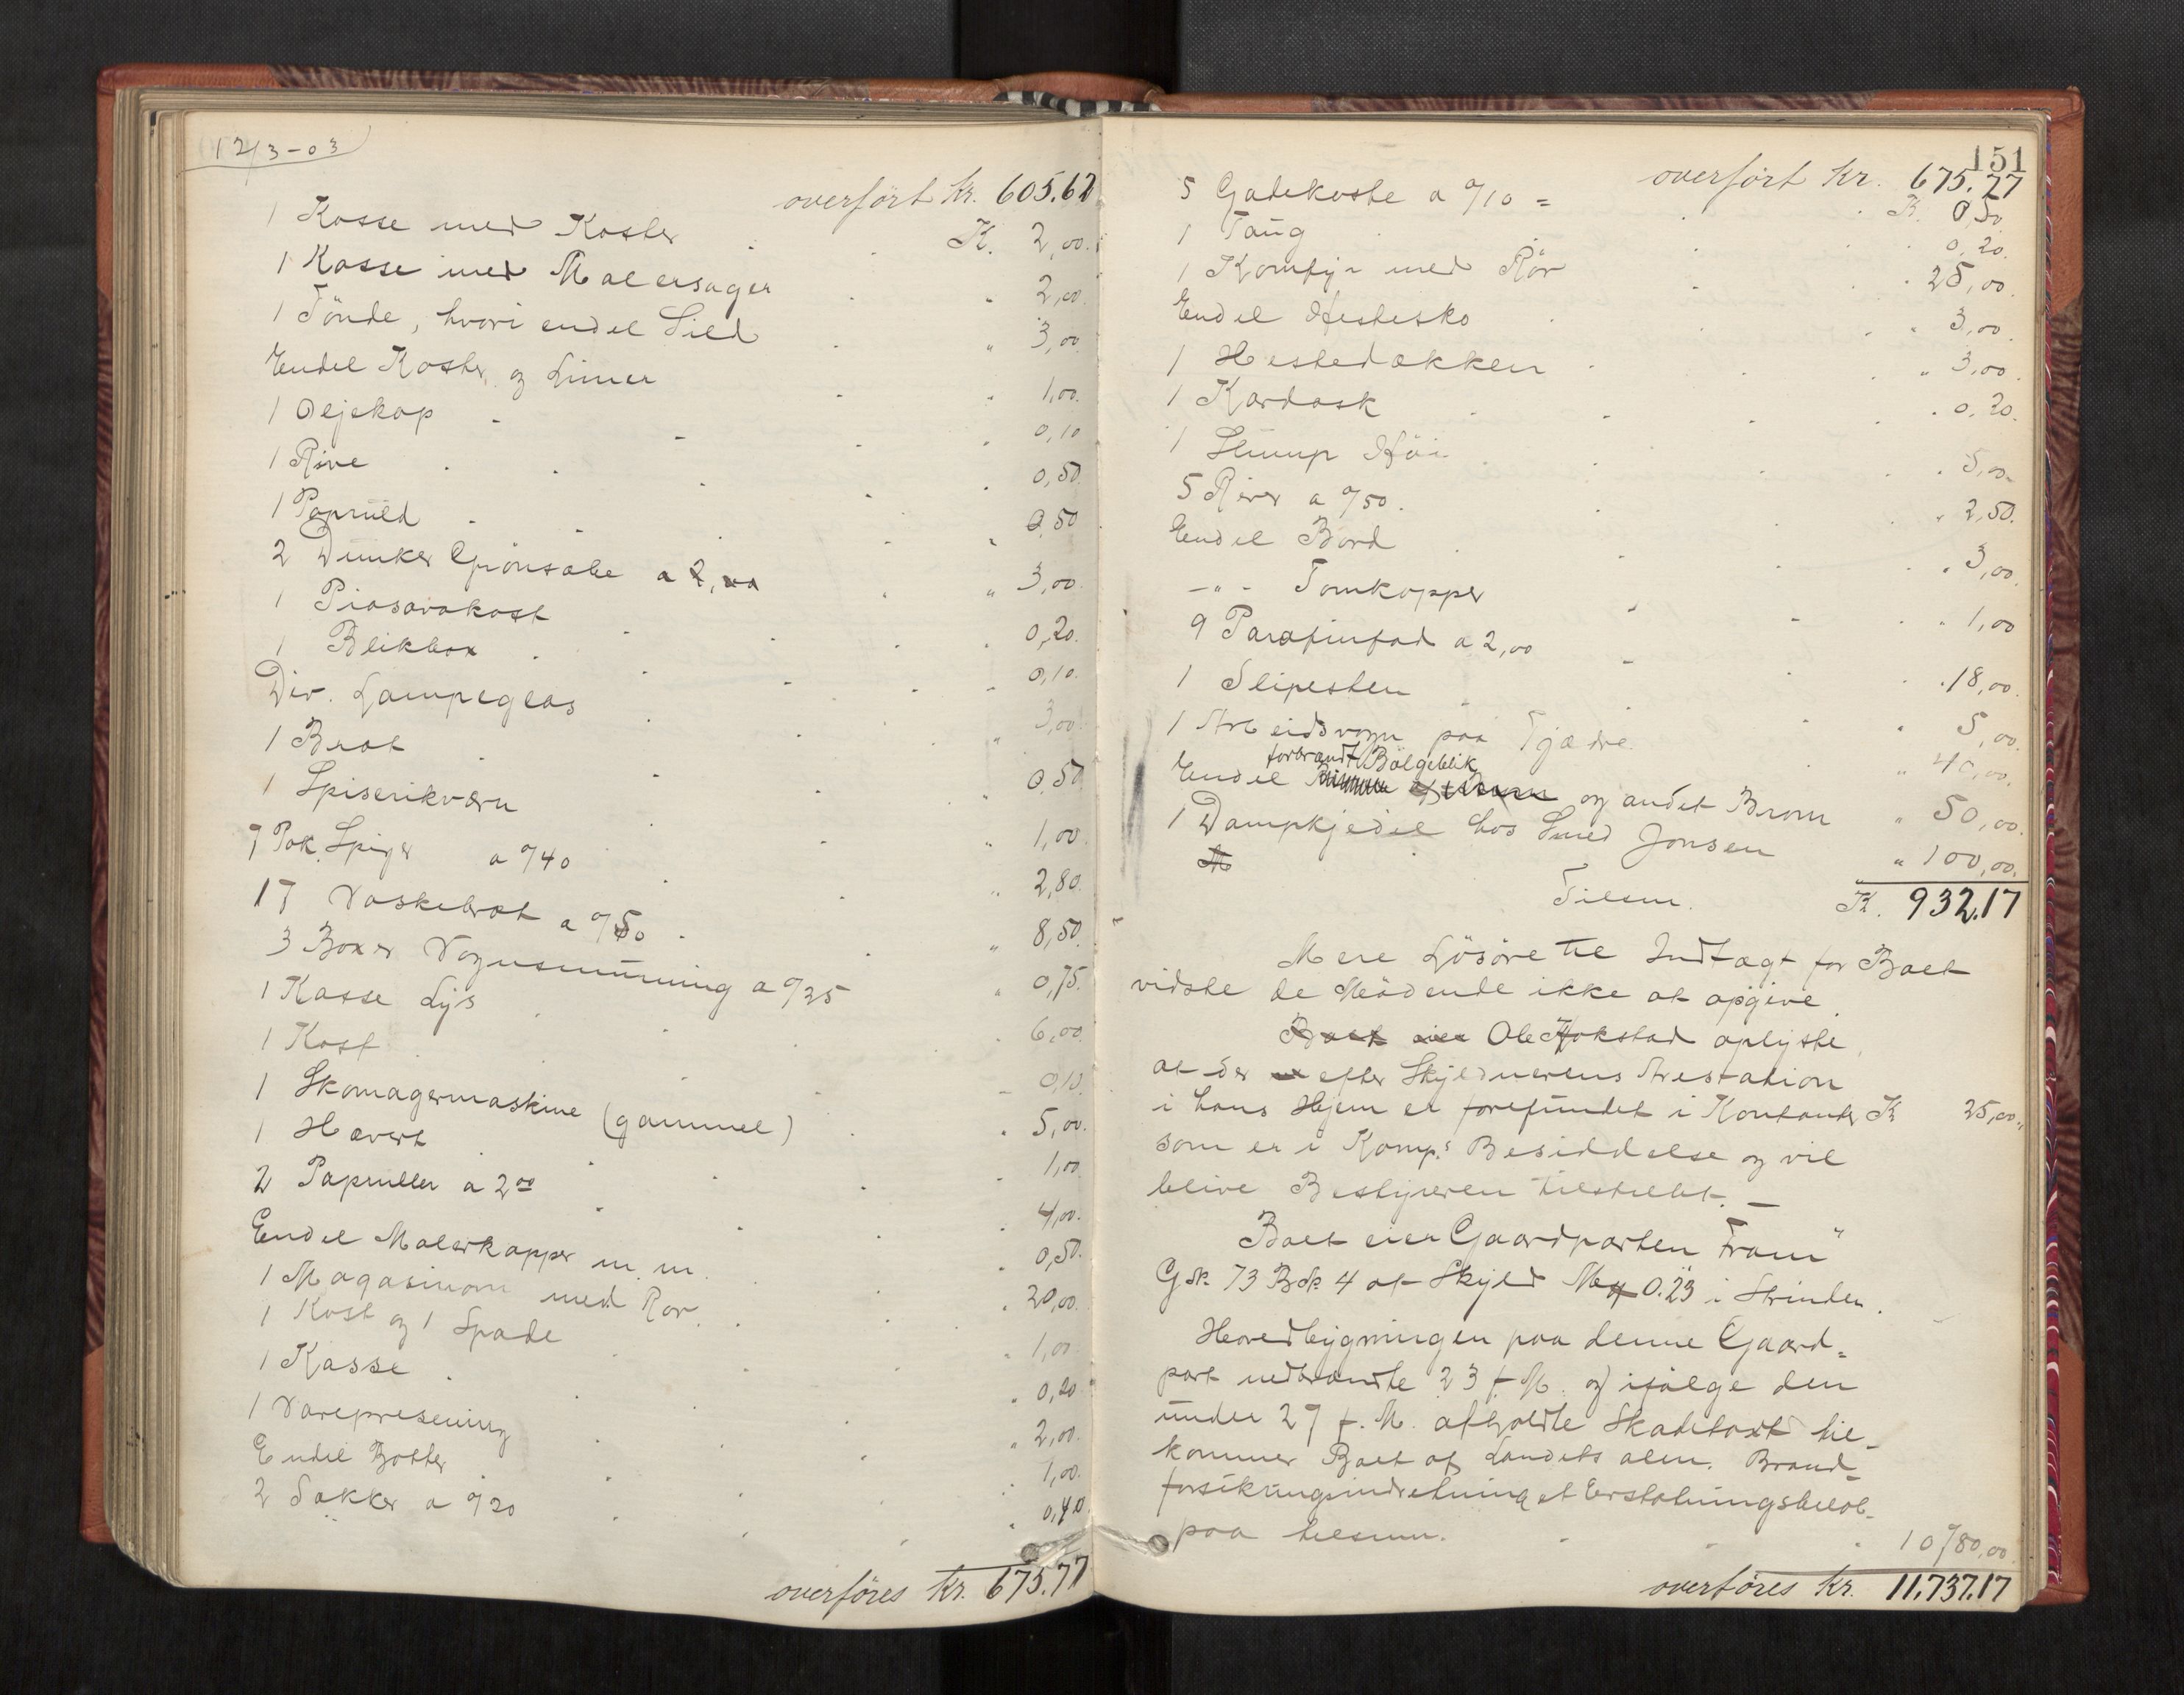 12/3-03
overført kr. 605.62
1 Kasse med Koster K. 2,00.
1 Kasse med Malersager " 2,00.
1 Tönde, hvori endel Sild " 3,00.
Endel Koster og Limer " 1,00.
1 Oljekop " 0,10
1 Rive " 0,50.
1 Paprüld " 0,50
2 Dunker Grönsäbe a 2,00 " 3,00.
1 Piasavakost 0,20.
1 Blikbox 0,10.
Div. Lampeglas " 3,00.
1 Bræt " 0,50
1 Spiserikværn " 1,00.
7 Pak. Spiger a 0/40 " 2,80.
17 Vaskebræt a 0/50 " 8,50.
3 Boxer Vognsmürning a 0/25 " 0,75.
1 Kasse Lys " 6,00.
1 Kost 0,10.
1 Skomagermaskine (gammel) " 5,00.
1 Hævert " 1,00.
2 Papruller a 2 00 " 4,00.
Endel Malerkopper m. m. " 0,50.
1 Magasinovn med Rör. " 20,00.
1 Kost og 1 Spade " 1,00.
1 Kasse " 0,20
1 Varepresening " 2,00.
Endel Bötter " 1,00.
2 Sækker a 0/20 " 0,40
overføres kr. 675.77
151
overført kr. 675.77
5 Gadekoste a 0/10 = K. 0,50.
1 Taug 0,20.
1 Komfyr med Rör " 25,00.
Endel Hestesko " 3,00.
1 Hestedækken " 3,00.
1 Kardask " 0,20.
1 Slump Höi " 5,00
5 River a 0/50. " 2,50.
Endel Bord " 3,00.
-"- Tomkopper " 1,00
9 Parafinfad a 2,00 " 18,00.
1 Slipesten " 5,00.
1 Arbeidsvogn paa Fjædre " 40,00.
forbrændt Bölgeblik
Endel og andet Brom " 50,00.
1 Dampkjedel hos Smed Jonsen " 100,00.
Tilsm. K. 932.17
Mere Lösöre til Indtægt for Boet
vidste de Mödende ikke at opgive.
Boet eier Ole Hokstad oplyste,
at der efter Skyldnerens Arestation
i hans Hjem er forefundet i Kontanter K 25,00.
som er i Komp.s Besiddelse og vil
blive Bestyreren tilstillet. —
Boet eier Gaardparten "Fram"
G No. 73 B No. 4 af Skyld Mark 0.23 i Strinden.
Hovedbygningen paa denne Gaard-
part nedbrændte 23 f. M. og ifölge den
under 27 f. M. afholdte Skadetaxt til-
kommer Boet af Landets alm. Brand-
forsikringsindretning et Erstatningsbelöb
paa tilsmm. 10780,00.
overføres kr. 11.737.17